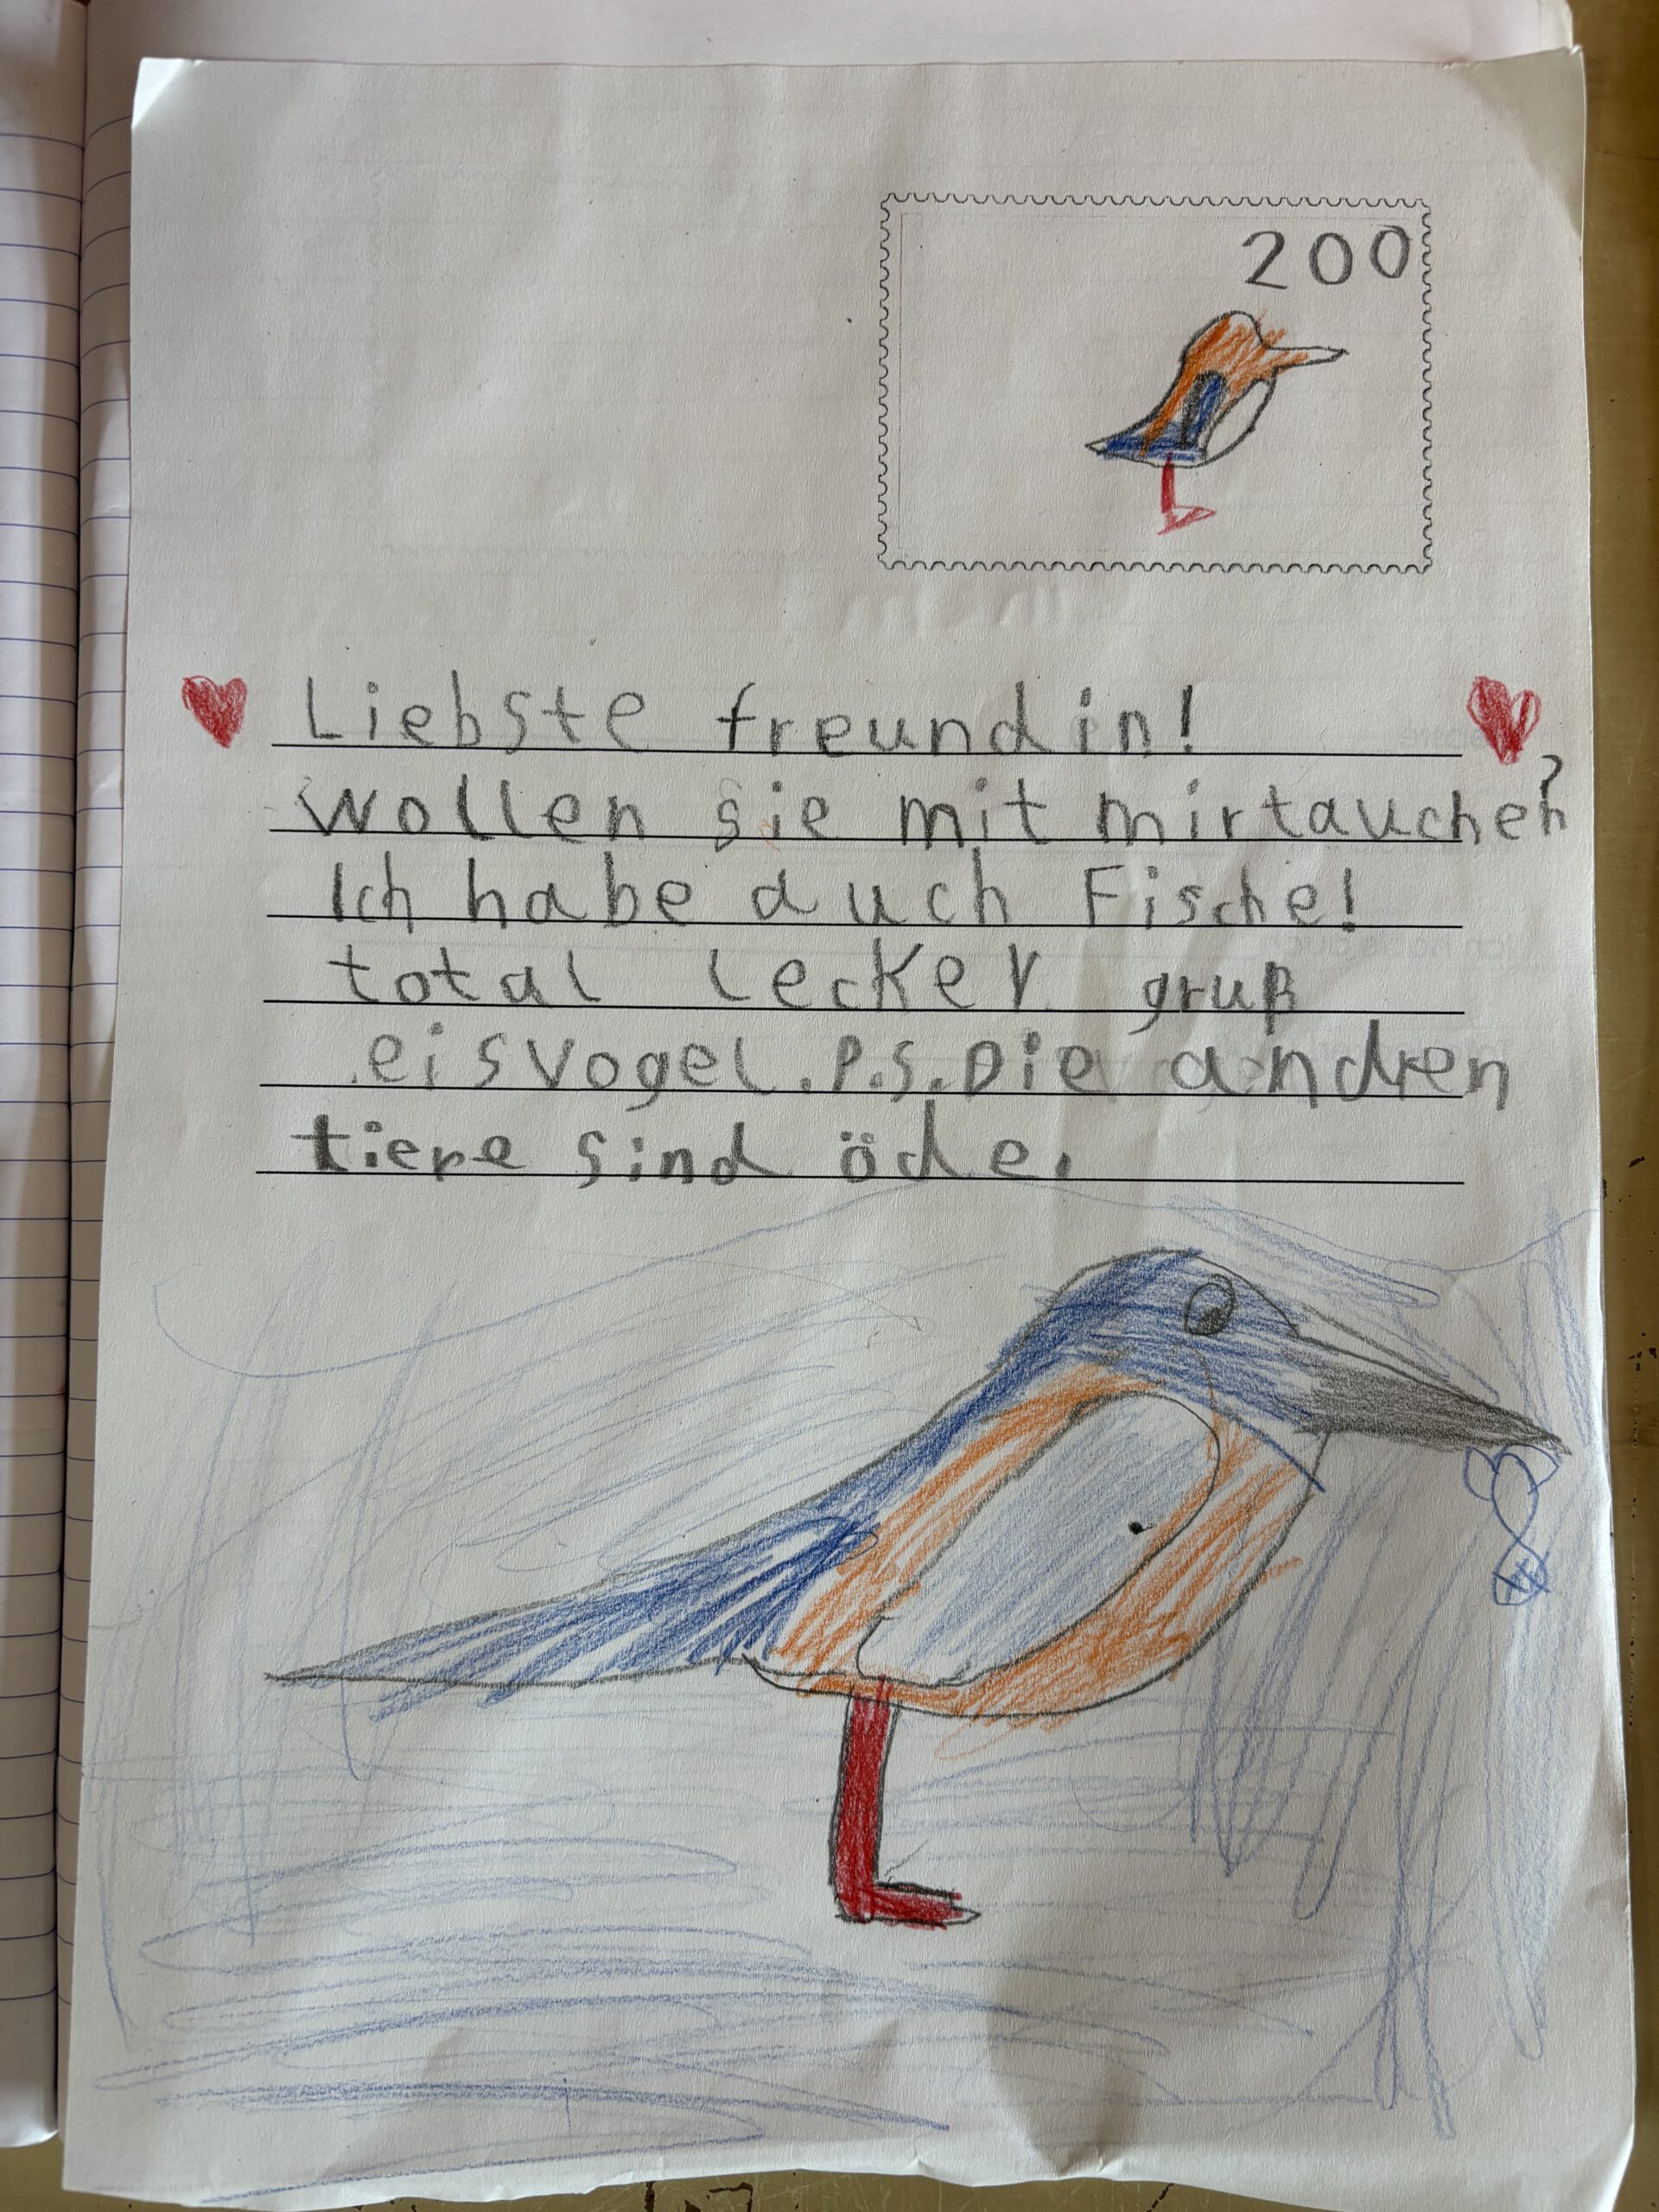 200
Liebste freundin!
wollen sie mit mir tauchen?
Ich habe auch Fische!
total lecker gruß
eisvogel. P.S. Die andren
tiere sind öde.